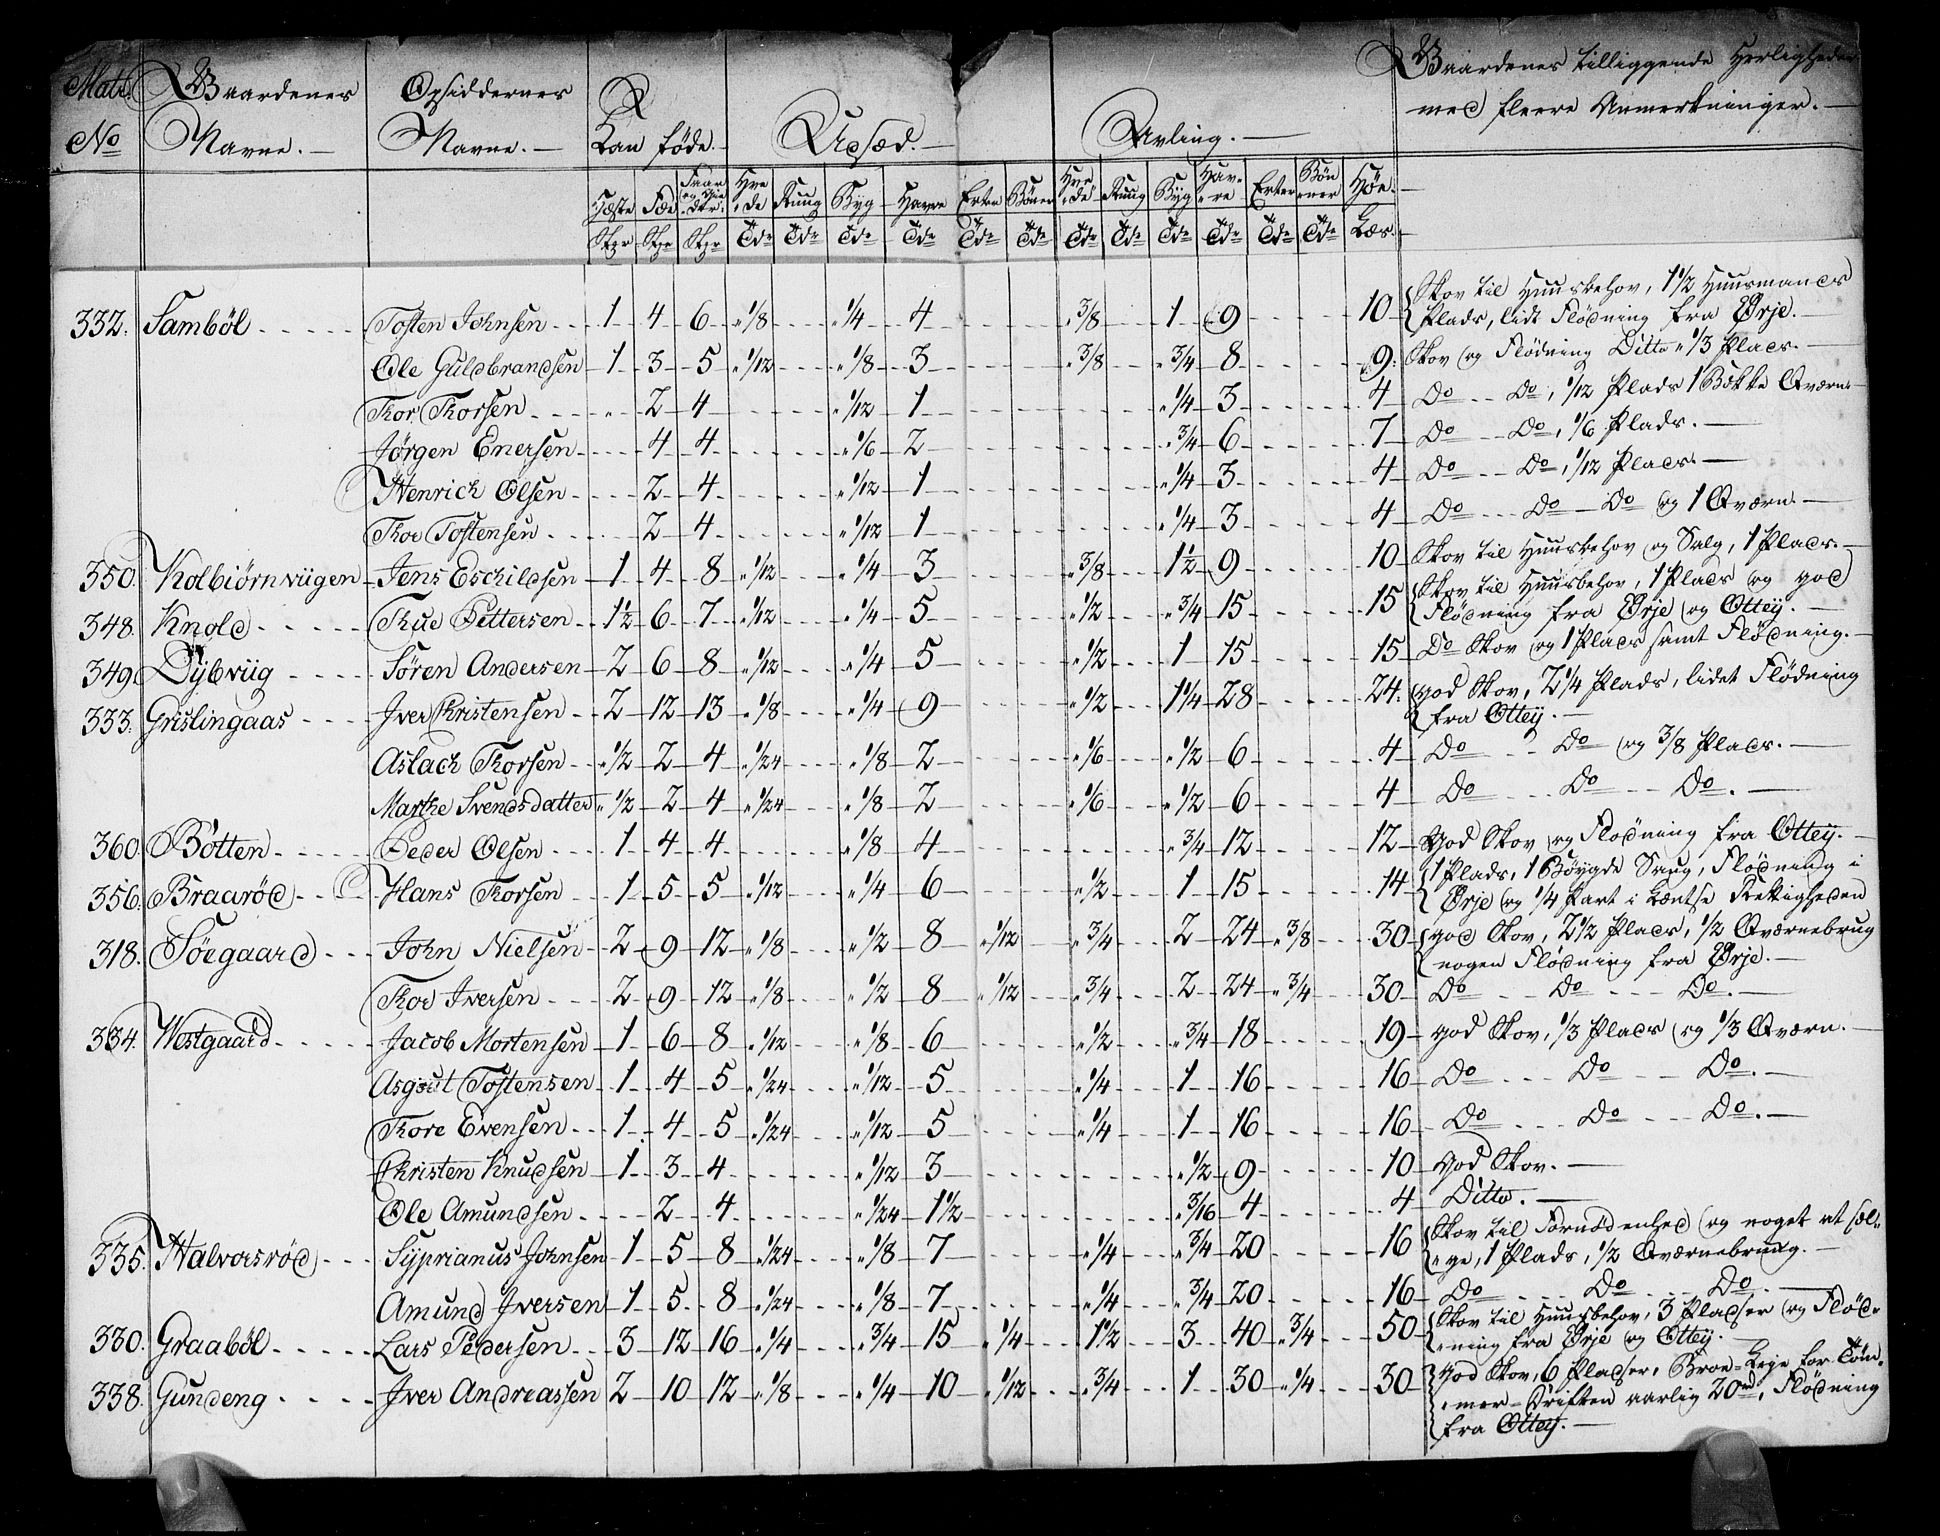 Matr. Gaardenes Opsiddernes Kan føde. Udsæd. Avling. Gaardenes tilliggende Herligheder
No Navne. Navne. med fleere Anmerkninger.
Heste Fæe Faar og Gieder Hvede Rug Byg Havre Erter Bønner Hvede Rug Byg Havre Erter Bønner Høe
Stkr Stkr Stkr Tdr Tdr Tdr Tdr Tdr Tdr Tdr Tdr Tdr Tdr Tdr Tdr Læs.
332. Samböl Tosten Johnsen 1 4 6 1/8 1/4 4 3/8 1 9 10 Skov til Huusbehov, 1 1/2 Huusmands
Plads, lidt Flödning fra Ørje.
Ole Guldbrandsen 1 3 5 1/12 1/8 3 3/8 3/4 8 9 Skov og Flödning Ditto 1/3 Plads.
Thor Thorsen 2 4 1/12 1 1/4 3 4 Do Do, 1/12 Plads 1 Bække Qværn
Jørgen Enersen 4 4 1/6 2 3/4 6 7 Do Do, 1/6 Plads.
Henrich Olsen 2 4 1/12 1 1/4 3 4 Do Do, 1/12 Plads.
Thor Tostensen 2 4 1/12 1 1/4 3 4 Do Do Do og 1 Qværn.
350. Kolbiörnviigen Jens Eschildsen 1 4 8 1/12 1/4 3 3/8 1 1/2 9 10 Skov til Huusbehov og Salg, 1 Plads.
348. Knold Thue Pettersen 1 1/2 6 7 1/12 1/4 5 1/2 3/4 15 15 Skov til Huusbehov, 1 Plads og god
Flödning fra Ørje og Ottey.
349. Dybviig Sören Andersen 2 6 8 1/12 1/4 5 1/2 1 15 15 Do Skov og 1 Plads samt Flödning.
333. Grislingaas Jver Christensen 2 12 13 1/8 1/4 9 1/2 1 1/4 28 24. god Skov, 2 1/4 Plads, lidet Flödning
fra Ottey.
Aslach Thorsen 1/2 2 4 1/24 1/8 2 1/6 1/2 6 4 Do Do og 3/8 Plads.
Marthe Svendsdatter 1/2 2 4 1/24 1/8 2 1/6 1/2 6 4 Do Do Do.
360. Bötten Peder Olsen 1 4 4 1/8 4 3/4 12 12 God Skov og Flodning fra Ottey.
356. Braaröd Hans Thorsen 1 5 5 1/12 1/4 6 1/2 1 15 14 1 Plads, 1 Böygde Saug, Flödning i
Ørje og 1/4 Part i Læntse Rettigheden
318. Söegaard John Nielsen 2 9 12 1/8 1/2 8 1/12 3/4 2 24 3/8 30 god Skov, 2 1/2 Plads, 1/2 Qværnebrug
nogen Flödning fra Ørje.
Thor Jversen 2 9 12 1/8 1/2 8 1/12 3/4 2 24 3/4 30 Do Do Do.
334. Westgaard Jacob Mortensen 1 6 8 1/12 1/8 6 1/2 3/4 18 19 god Skov, 1/3 Plads og 1/3 Qværn.
Asgout Tostensen 1 4 5 1/24 1/12 5 1/4 1 16 16 Do Do Do.
Thore Evensen 1 4 5 1/24 1/12 5 1/4 1 16 16 Do Do Do.
Christen Knudsen 1 3 4 1/12 3 1/2 9 10 god Skov.
Ole Amundsen 2 4 1/24 1 1/2 3/16 4 4 Ditto.
335. Halvorsröd Syprianus Johnsen 1 5 8 1/24 1/8 7 1/4 3/4 20 16 Skov til Fornödenhed og noget at sæl-
ge, 1 Plads, 1/2 Qværnebrug.
Amund Jversen 1 5 8 1/24 1/8 7 1/4 3/4 20 16 Do Do Do
330. Graaböl Lars Pedersen 3 12 16 1/4 3/4 15 1/4 1 1/2 3 40 3/4 50 Skov til Huusbehov, 3 Pladser og Flöd-
ning fra Ørje og Ottey.
338. Gundeng Jver Andreassen 2 10 12 1/8 1/4 10 1/12 3/4 1 30 1/4 30 God Skov, 6 Pladser, Broe-Leje for Töm-
mer-Driften aarlig 20 rd, Flödning
fra Ottey.